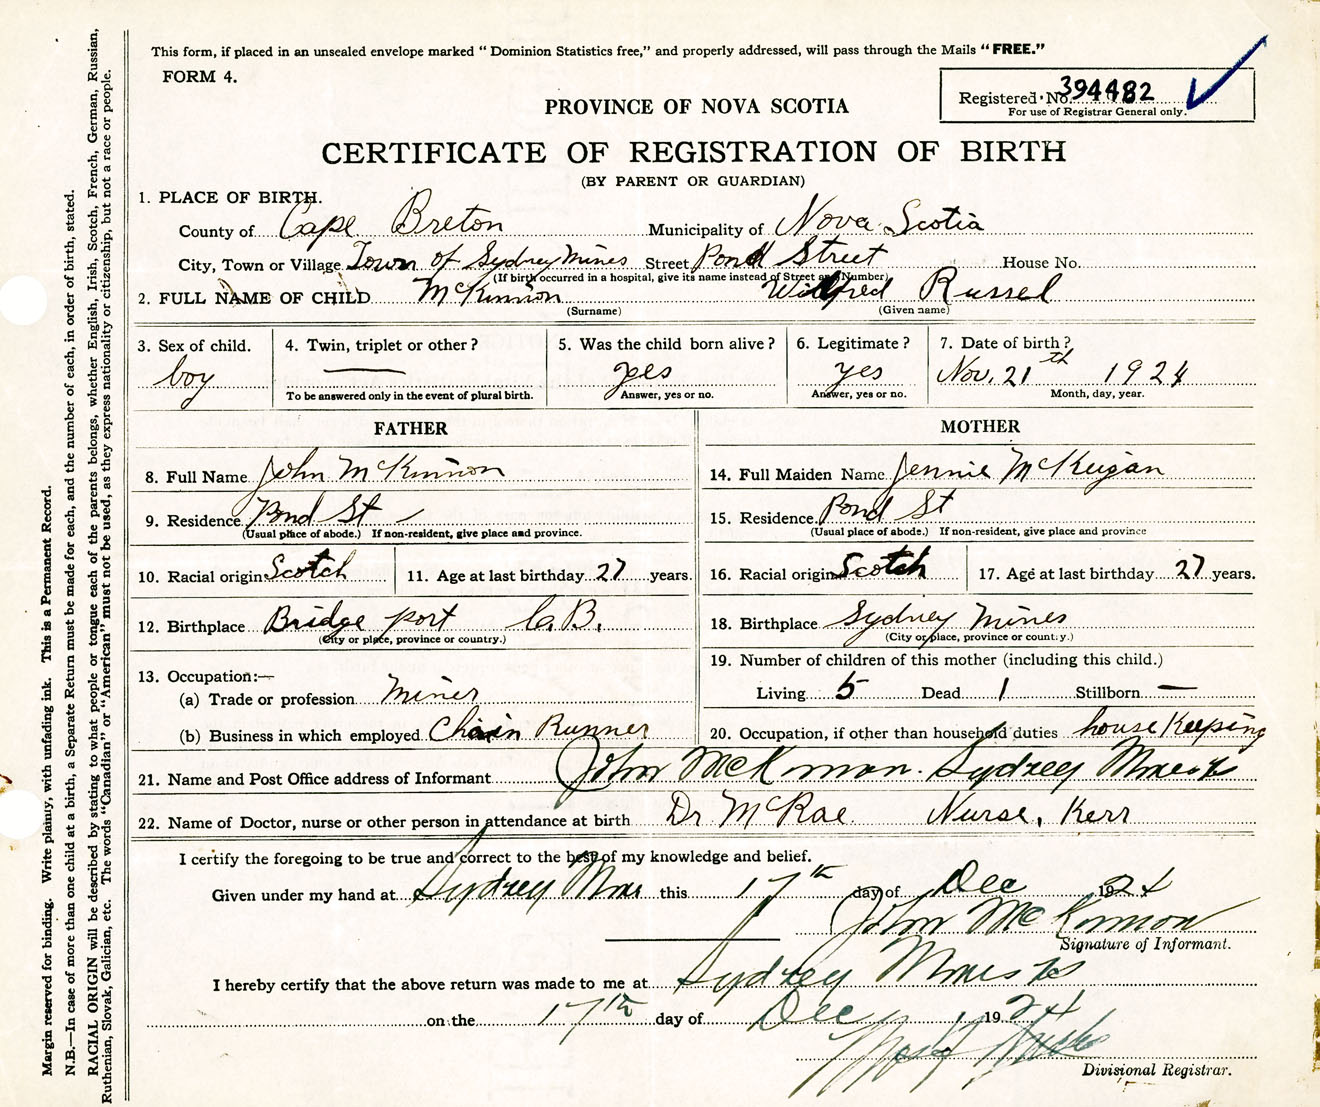 This form, if placed in an unsealed envelope marked "Dominion Statistics free," and properly addressed, will pass through the Mails "FREE."
FORM 4.
Registered No. 394482
For use of Registrar General only.
PROVINCE OF NOVA SCOTIA
CERTIFICATE OF REGISTRATION OF BIRTH
(BY PARENT OR GUARDIAN)
1. PLACE OF BIRTH.
County of Cape Breton Municipality of Nova Scotia
City, Town or Village Town of Sydney Mines Street Pond Street House No.
(If birth occurred in a hospital, give its name instead of Street and Number)
2. FULL NAME OF CHILD McKinnon Wilfred Russel
(Surname) (Given name)
3. Sex of child. 4. Twin, triplet or other? 5. Was the child born alive? 6. Legitimate? 7. Date of birth?
boy — yes yes Nov. 21th 1924
To be answered only in the event of plural birth. Answer, yes or no. Answer, yes or no. Month, day, year.
FATHER MOTHER
8. Full Name John McKinnon 14. Full Maiden Name Jennie McKeigan
9. Residence Pond St 15. Residence. Pond St
(Usual place of abode.) If non-resident, give place and province. (Usual place of abode.) If non-resident, give place and province
10. Racial origin Scotch 11. Age at last birthday 27 years. 16. Racial origin Scotch 17. Age at last birthday 27 years.
12. Birthplace Bridge port C.B. 18. Birthplace Sydney Mines
(City or place, province or country.) (City or place, province or country.)
19. Number of children of this mother (including this child.)
13. Occupation:—
(a) Trade or profession Miner Living 5 Dead 1 Stillborn —
(b) Business in which employed Chain Runner 20. Occupation, if other than household duties house Keeping
21. Name and Post Office address of Informant John McKinnon. Sydney Mines
22. Name of Doctor, nurse or other person in attendance at birth Dr McRae Nurse, Kerr
I certify the foregoing to be true and correct to the best of my knowledge and belief.
Given under my hand at Sydney Mines this 17th day of Dec 1924
John McKinnon
Signature of Informant.
I hereby certify that the above return was made to me at Sydney Mines
on the 17th day of Dec 1924
Divisional Registrar.
Margin reserved for binding. Write plainly, with unfading ink. This is a Permanent Record.
N.B.—In case of more than one child at a birth, a Separate Return must be made for each, and the number of each, in order of birth, stated.
RACIAL ORIGIN will be described by stating to what people or tongue each of the parents belongs, whether English, Irish, Scotch, French, German, Russian,
Ruthenian, Slovak, Galician, etc. The words "Canadian" or "American" must not be used, as they express nationality or citizenship, but not a race or people.